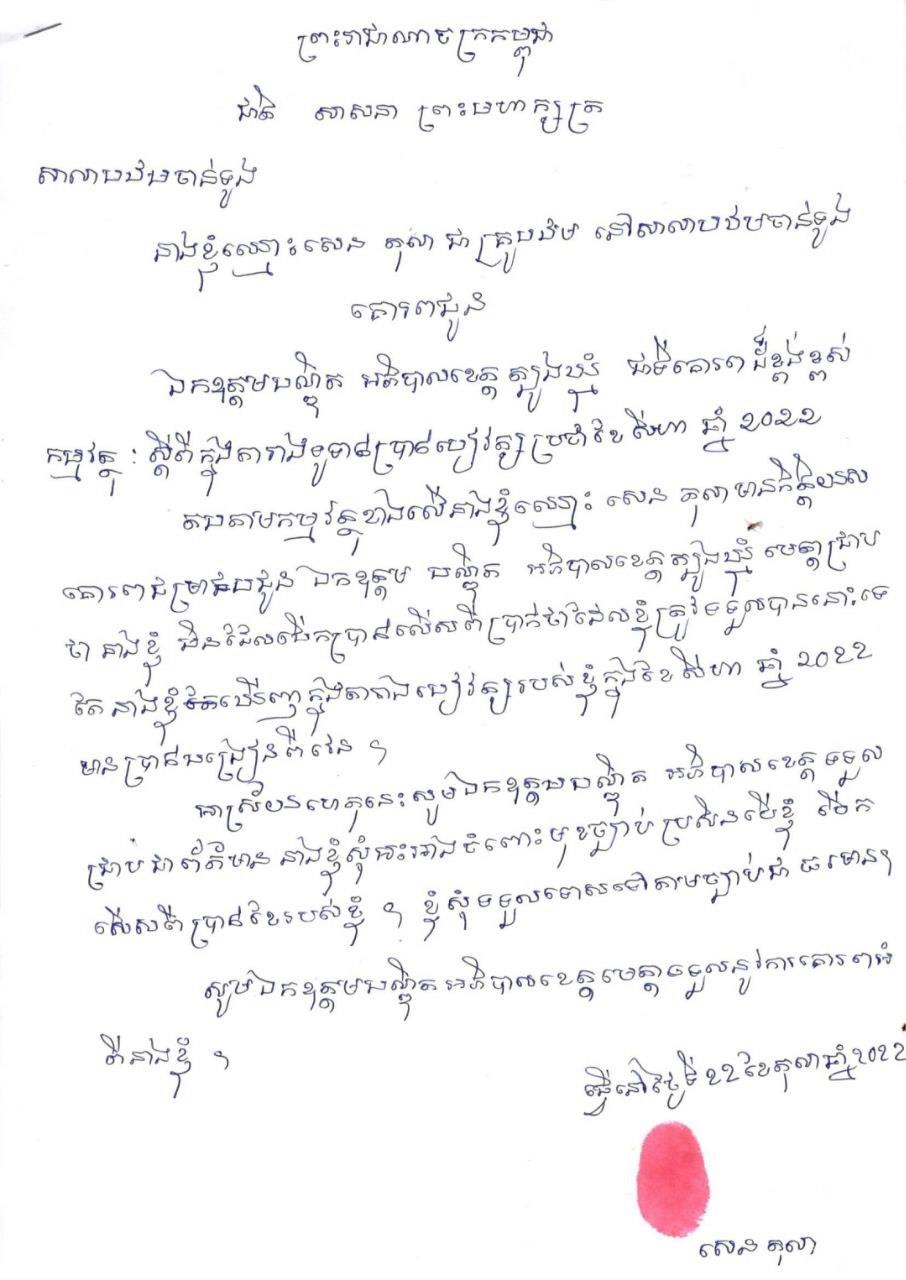 ព្រះរាជាណាចក្រកម្ពុជា
ជាតិ សាសនា ព្រះមហាក្សត្រ
សាលាបឋមចាន់ទូង
នាងខ្ញុំឈ្មោះសេន តុលា ជាគ្រូបឋម នៅសាលាបឋមចាន់ទូង
គោរពជូន
ឯកឧត្តមបណ្ឌិត អភិបាលខេត្តត្បូងឃ្មុំ ជាទីគោរពដ៏ខ្ពង់ខ្ពស់
កម្មវត្ថុ : ស្តីពីក្នុងតារាងទូទាត់ប្រាក់បៀវត្សប្រចាំខែ សីហា ឆ្នាំ 2022
តបតាមកម្មវត្ថុខាងលើនាងខ្ញុំឈ្មោះ សេន តុលាមានកិត្តិយស
គោរពជម្រាបជូន ឯកឧត្តម បណ្ឌិត អភិបាលខេត្តត្បូងឃ្មុំ មេត្តាជ្រាប
ថា នាងខ្ញុំ មិនដែលបើកប្រាក់លើសពីប្រាក់ដែលខ្ញុំត្រូវទទួលបាននោះទេ
តែ នាងខ្ញុំឃើញក្នុងតារាងបៀវត្សរបស់ខ្ញុំក្នុងខែសីហា ឆ្នាំ 2022
មានប្រាក់បង្រៀនពីរវេន ។
អាស្រ័យហេតុនេះសូមឯកឧត្តមបណ្ឌិត អភិបាលខេត្តទទួល
ជ្រាបជាព័ត៌មាន នាងខ្ញុំសុំអះអាងចំពោះមុខច្បាប់ ប្រសិនបើខ្ញុំ បើក
លើសពីប្រាក់ខែរបស់ខ្ញុំ ។ ខ្ញុំសុំទទួលទោសទៅតាមច្បាប់ជាធរមាន។
សូមឯកឧត្តមបណ្ឌិតអភិបាលខេត្តមេត្តាទទួលនូវការគោរពអំ
ពីនាងខ្ញុំ ។
ធ្វើនៅថ្ងៃទី 22 ខែតុលាឆ្នាំ 2022
សេន តុលា